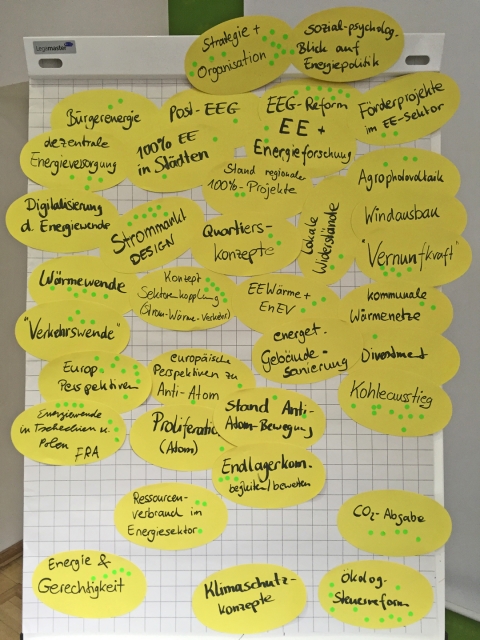 legamaster
Strategie +
Organisation
sozial-psycholog.
Blick auf
Energiepolitik
Bürgerenergie
Post-EEG
EEG-Reform
EE +
Energieforschung
Förderprojekte
im EE-Sektor
dezentrale
Energieversorgung
100% EE
in Städten
Stand regionale
100%-Projekte
Agrophotovoltaik
Digitalisierung
d. Energiewende
Strommarkt
DESIGN
Quartiers-
konzepte
Lokale
Widerstände
Windausbau
"Vernunftkraft"
Wärmewende
Konzept
Sektorenkopplung
(Strom-Wärme-Verkehr)
EEWärme +
EnEV
kommunale
Wärmenetze
"Verkehrswende"
energet.
Gebäude-
sanierung
Divestment
Europ.
Perspektiven
europäische
Perspektiven zu
Anti-Atom
Kohleausstieg
Energiewende
in Tschechien u.
Polen FRA
Proliferation
(Atom)
Stand Anti-
Atom-Bewegung
Endlagerkom.
begleiten/bewerten
Ressourcen-
verbrauch im
Energiesektor
CO2-Abgabe
Energie &
Gerechtigkeit
Klimaschutz-
konzepte
Ökolog.
Steuerreform